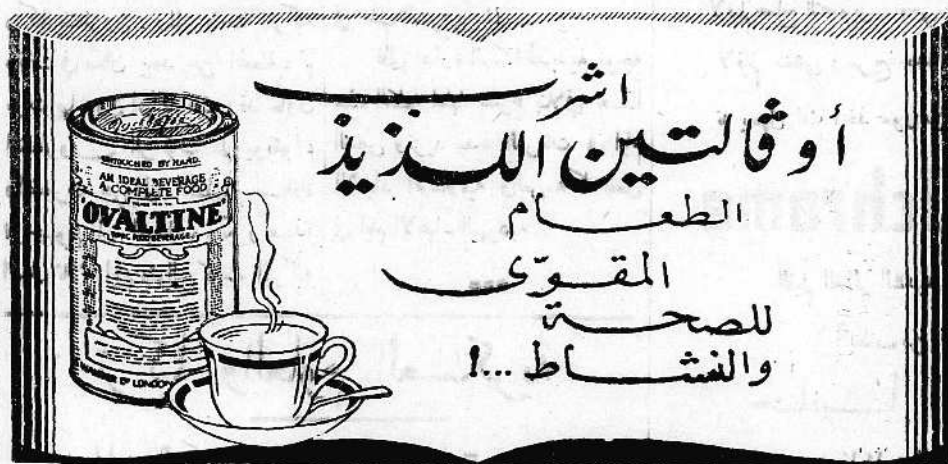 اشرب
أوڤالتين اللذيذ
الطعام
المقوّى
للصحة
والنشاط ...!
UNTOUCHED BY HAND.
AN IDEAL BEVERAGE
A COMPLETE FOOD
'OVALTINE'
LONDON